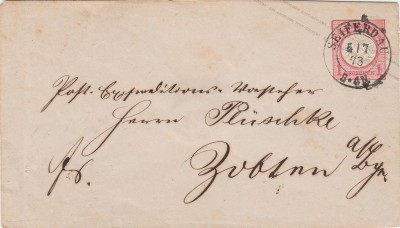 SEIFERDAU
5/7
73
Post-Expeditions-Vorsteher
Herrn Plüschke
fr.
Zobten a/
Bge.